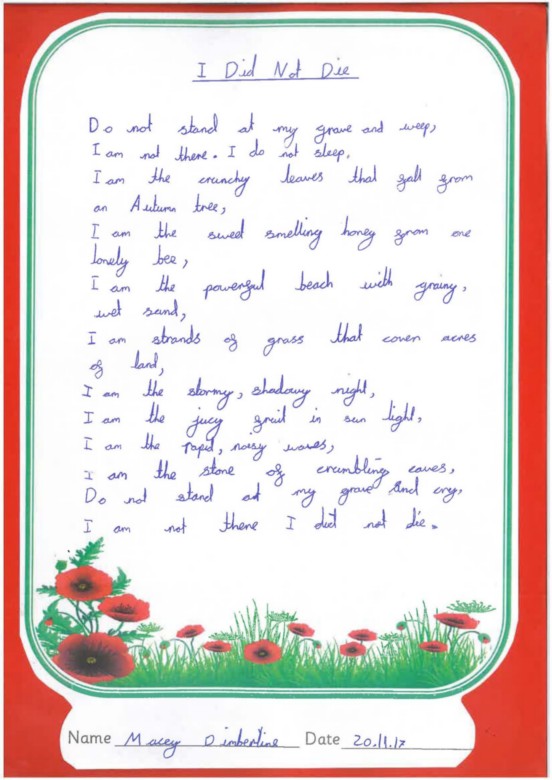 I Did Not Die
Do not stand at my grave and weep,
I am not there. I do not sleep,
I am the crunchy leaves that fall from
an Autumn tree,
I am the sweet smelling honey from one
lonely bee,
I am the powerful beach with grainy,
wet sand,
I am strands of grass that cover acres
of land,
I am the stormy, shadowy night,
I am the jucy fruit in sun light,
I am the rapid, noisy waves,
I am the stone of crumbling caves,
Do not stand at my grave and cry,
I am not there I did not die.
Name Macey Date 20.11.17